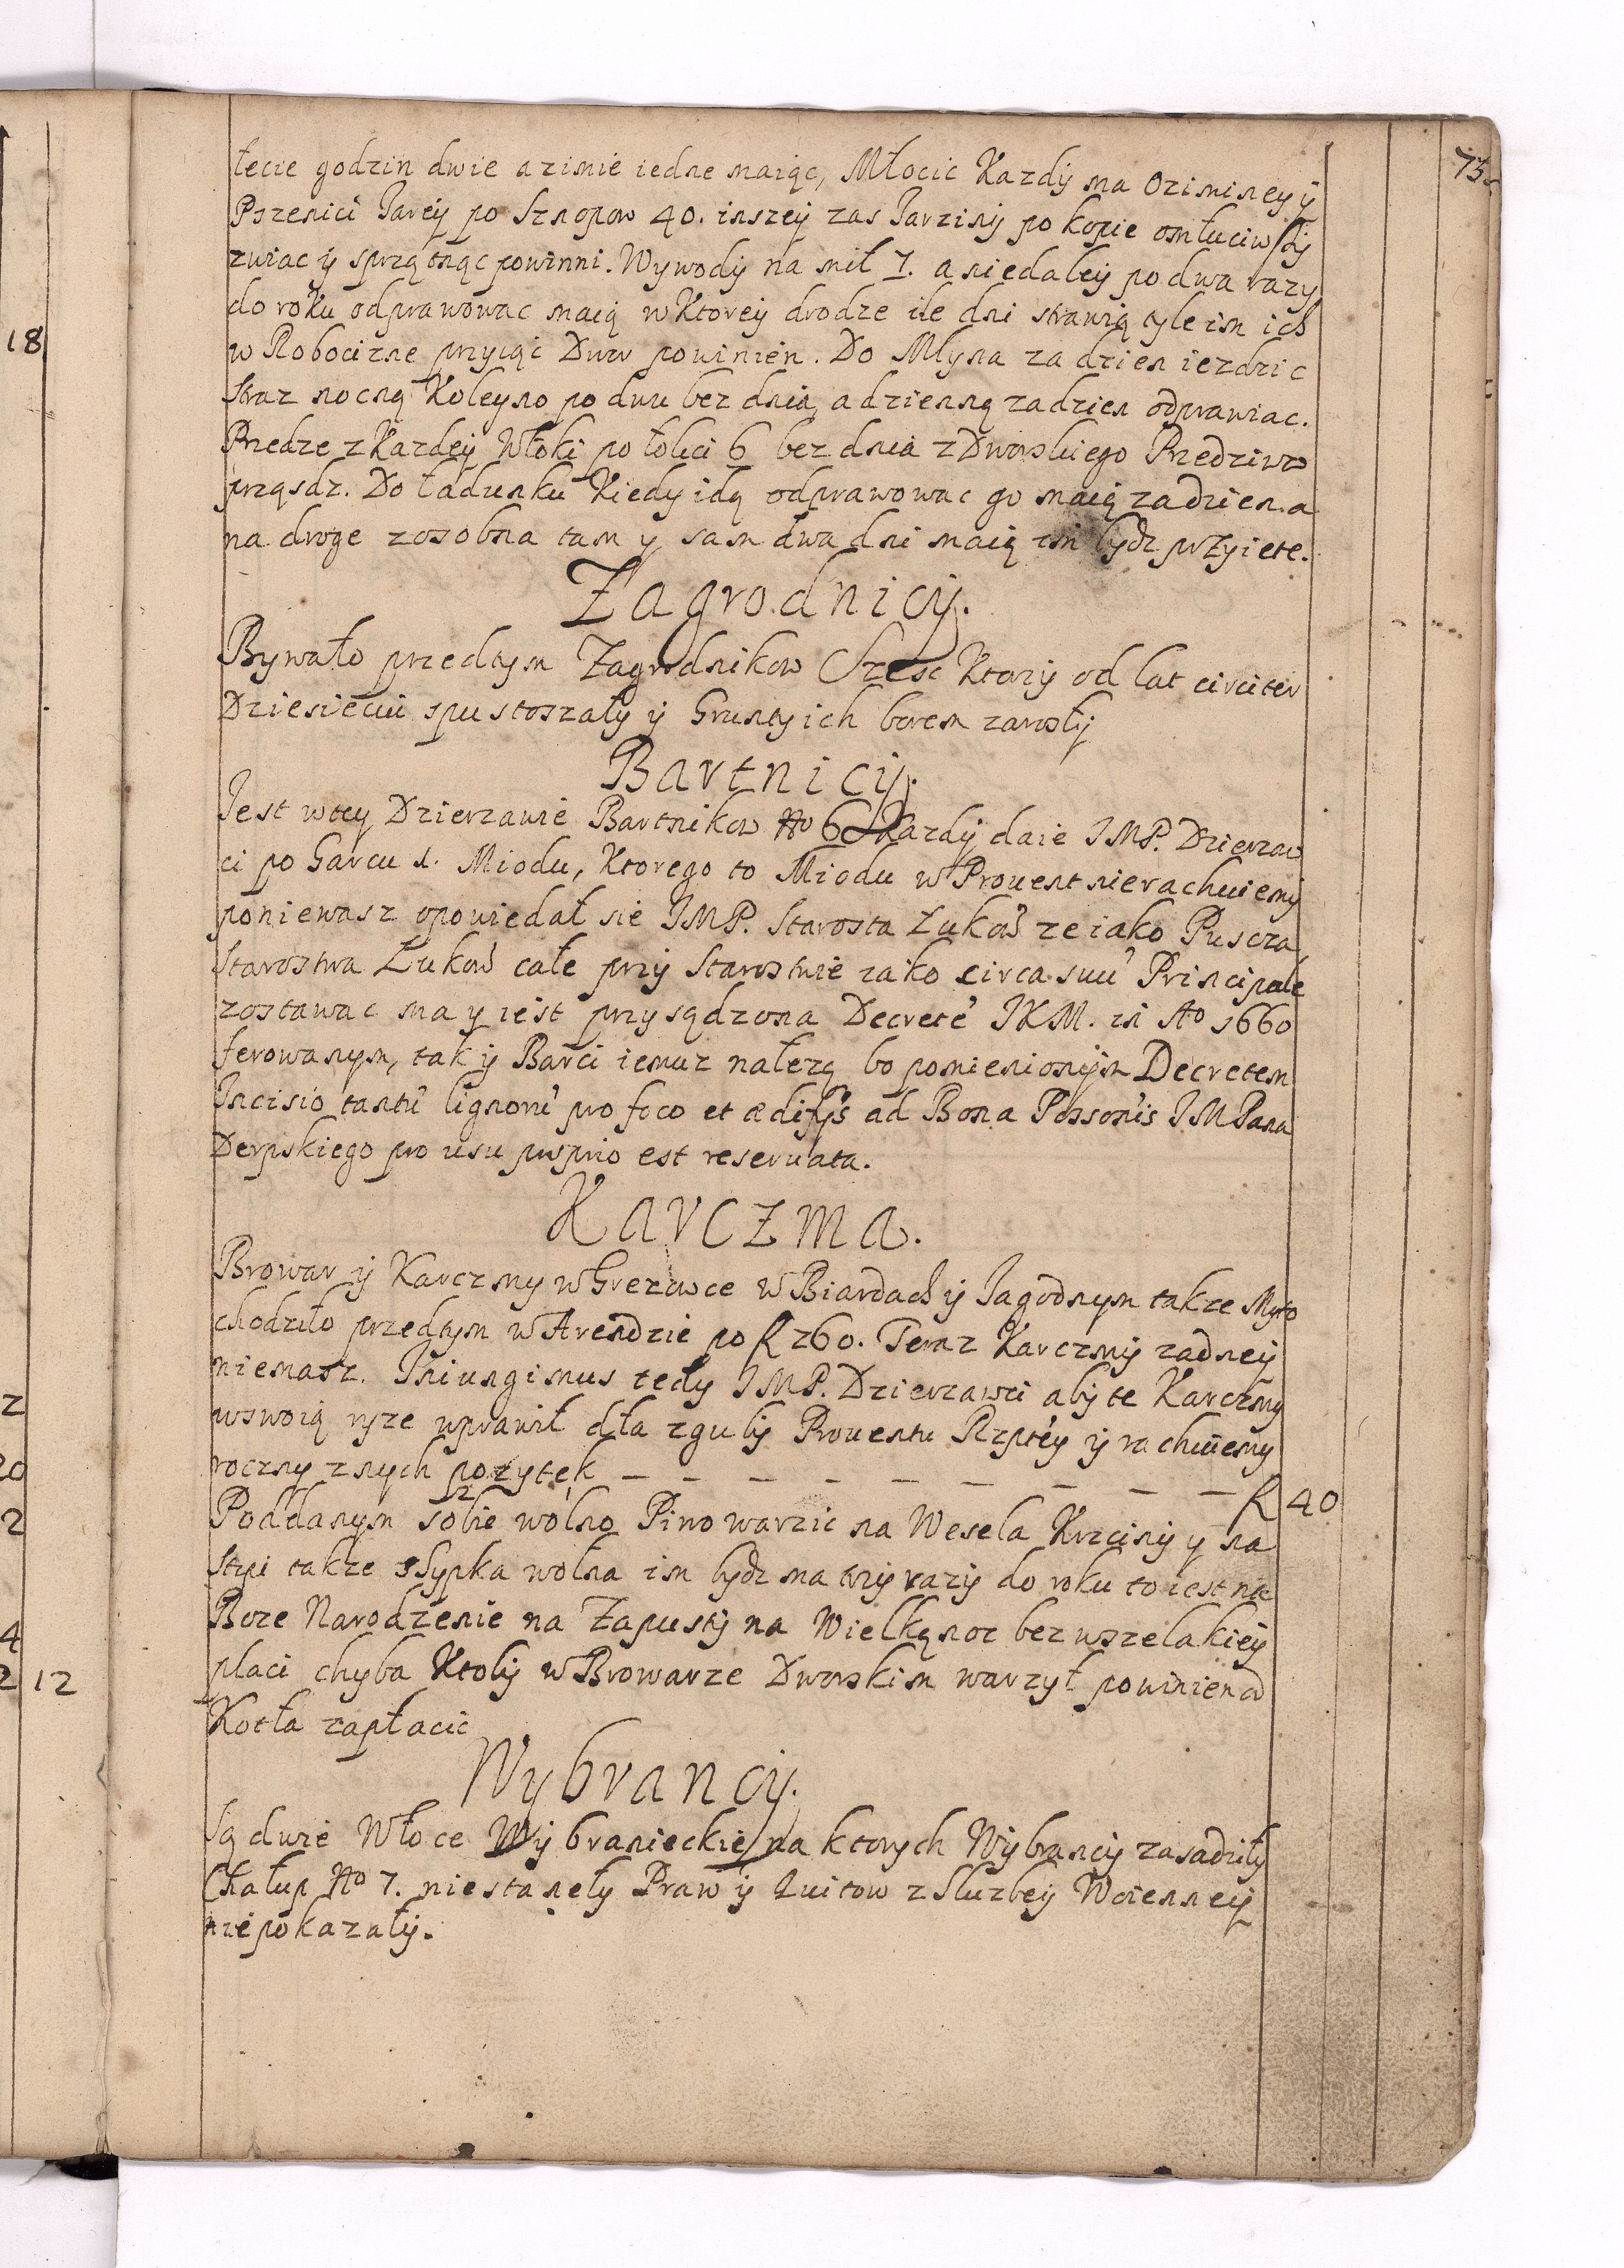 73
lecie godzin dwie a zimie iedne maiąc, Młocic Kazdy ma Oziminey y
Pszenici Jarey po Sznopow 40. inszey zas Jarziny po kopie omłuciwszy
zwiac y sprzątnąc powinni. Wywody na mil 7. a niedaley po dwa razy
do roku odprawowac maią w Ktorey drodze ile dni strawią tyle im ich
w Robocizne przyiąc Dwor powinien. Do Młyna za dzien iezdzic
Straz nocną Koleyno po dwu bez dnia, a dzienną za dzien odprawiac.
Przedze z Kazdey Włoki po łokci 6 bez dnia z Dworskiego Przedziwa
prząsdz. Do ładunku Kiedy idą odprawowac go maią za dzien a
na droge zosobna tam y sam dwa dni maią im bydz przyiete.
Zagrodnicy.
Bywało przedtym Zagrodnikow Szesc Ktorzy od lat circiter
Dziesieciu spustoszały y Grunty ich borem zarosły
Bartnicy.
Jest w tey Dzierzawie Bartnikow No 6 Kazdy daie JMP. Dzierzaw
ci po Garcu 1. Miodu, Ktorego to Miodu w Prouent nierachuiemy
poniewasz opowiedał sie JMP. Starosta Łukow ze iako Puscza
Starostwa Łukow całe przy Starostwie iako circa suu Principale
zostawac ma y iest przysądzona Decrete JKM. in Ao 1660
ferowanym, tak y Barci iemuz nalezą bo pomienionym Decretem
Incisio tantu lignoru pro foco et ædifijs ad Bona Possonis JMPana
Derpskiego pro usu proprio est reseruata.
Karczma.
Browar y Karczmy w Grezowce w Biardach y Jagodnym takze Myto
chodziło przedtym w Arendzie po f 260. Teraz Karczmy zadney
niemasz. Iniungimus tedy JMP. Dzierzawci aby te Karczmy
wswoią ryze wprawił dla zguby Prouentu Rzptey y rachuiemy
roczny znych pozytek – – – – – – – – – f 40
Poddanym sobie wolno Piwo warzic na Wesela Krzciny y na
Stpi takze sSypka wolna im bydz ma trzy razy do roku to iest na
Boze Narodzenie na Zapusty na Wielkąnoc bez wszelakiey
płaci chyba Ktoby w Browarze Dworskim warzył powinien od
Kotła zapłacic
Wybrancy.
Są dwie Włoce Wybranieckie na ktorych Wybrancy zasadziły
Chałup No 7. niestanęły Praw y Quitow z Sluzbey Woienney
niepokazały.
18
2
20
2
4
2 12